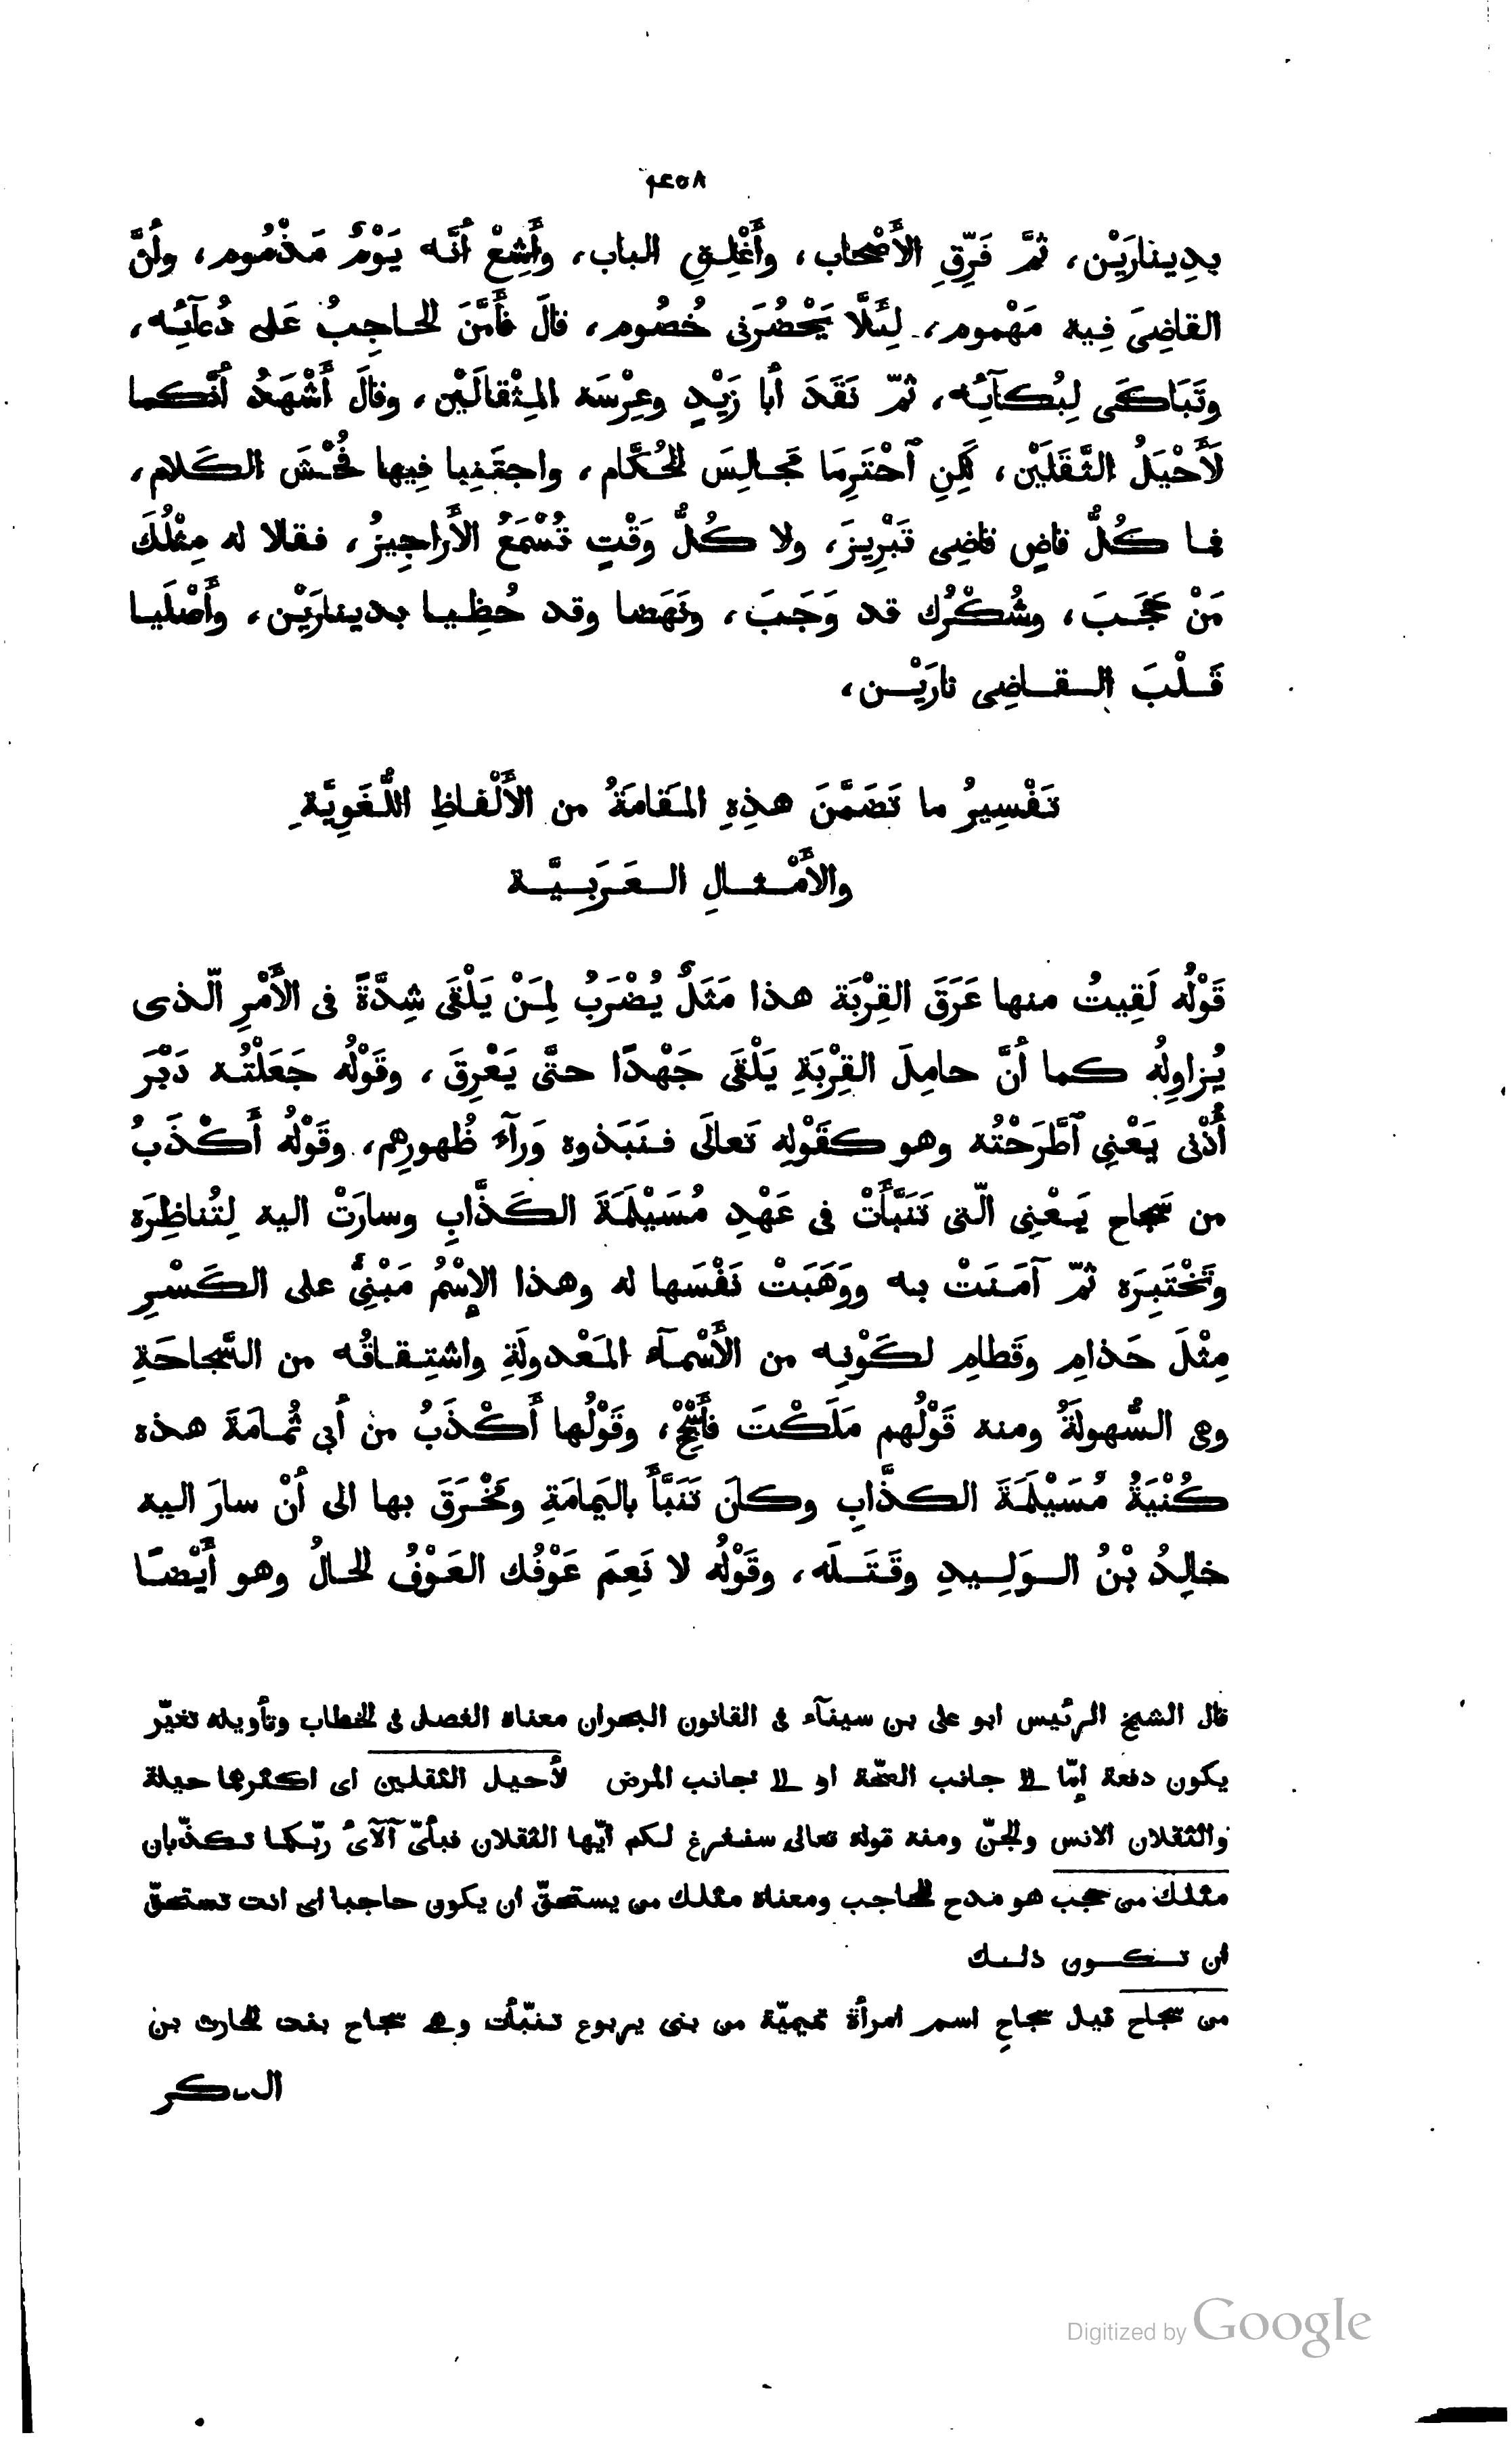 ۴۵۸
بِدِينارَيْن، ثمَّ فَرِّقِ الأَصْحاب، وأَغْلِقِ الباب، وأَشِعْ أَنَّه يَوْمٌ مَذْمُوم، وأَنَّ
القاضِىَ فِيه مَهْموم، لِئَلَّا يَحْضُرَنى خُصُوم، قالَ فأَمَّنَ الحاجِبُ عَلى دُعآئِه،
وتَبَاكَى لِبُكآئِه، ثمّ نَقَدَ أَبا زَيْدٍ وعِرْسَه المِثْقالَيْن، وقالَ أَشْهَدُ أَنَّكما
لَأَحْيَلُ الثَّقَلَيْن، لَكِنِ ٱحْتَرِمَا مَجالِسَ الحُكَّام، واجتَنِبا فِيها فُحْشَ الكَلام،
فما كُلُّ قاضٍ قاضِى تَبْرِيزَ، ولا كُلُّ وَقْتٍ تُسْمَعُ الأَراجِيزُ، فقالا له مِثْلُكَ
مَنْ حَجَبَ، وشُكْرُك قد وَجَبَ، ونَهَضا وقد حُظِيا بدينارَيْن، وأَصْلَيا
قَلْبَ القاضِى نارَيْن،
تَفْسِيرُ ما تَضَمَّنَ هذِهِ المَقامَةُ من الأَلْفاظِ اللُّغَوِيَّةِ
والأَمْثالِ العَرَبِيَّة
قَوْلُه لَقِيتُ منها عَرَقَ القِرْبَة هذا مَثَلٌ يُضْرَبُ لِمَنْ يَلْقَى شِدَّةً فى الأَمْرِ الّذى
يُزاوِلُه كما أَنَّ حامِلَ القِرْبَةِ يَلْقَى جَهْدًا حتَّى يَعْرِقَ، وقَوْلُه جَعَلْتُه دَبْرَ
أُذْنى يَعْنِى ٱطَّرَحْتُه وهو كقَوْلِه تَعالَى فنَبَذوه وَرآءَ ظُهورِهم، وقَوْلُه أَكْذَبُ
من سَجاح يَعْنِى الّتى تَنَبَّأَتْ فى عَهْدِ مُسَيْلِمَةَ الكَذَّابِ وسارَتْ اليه لِتُناظِرَه
وتَخْتَبِرَه ثمّ آمَنَتْ به ووَهَبَتْ نَفْسَها له وهذا الإِسْمُ مَبْنِىٌّ على الكَسْرِ
مِثْلَ حَذامِ وقَطامِ لكَوْنِه من الأَسْمآء المَعْدولَةِ واشتِقاقُه من السَّجاحَةِ
وهى السُّهولَةُ ومنه قَوْلُهم مَلَكْتَ فأَسْجِحْ، وقَوْلُها أَكْذَبُ من أَبِى ثُمامَةَ هذه
كُنْيَةُ مُسَيْلِمَةَ الكذَّابِ وكانَ تَنَبَّأَ باليَمامَةِ ومَخْرَقَ بها الى أَنْ سارَ اليه
خالِدُ بْنُ الوَلِيدِ وقَتَلَه، وقَوْلُه لا نَعِمَ عَوْفُك العَوْفُ الحالُ وهو أَيْضًا
قال الشيخ الرئيس ابو على بن سينآء فى القانون البحران معناه الفصل فى الخطاب وتأويله تغيّر
يكون دفعة إمّا الى جانب الصّحّة او الى جانب المرض لأحيل الثقلين اى اكثرهما حيلة
والثقلان الانس والجنّ ومنه قوله تعالى سنفرغ لكم ايّها الثقلان فبأىّ آلآء ربّكما تكذّبان
مثلك من حجب هو مدح للحاجب ومعناه مثلك من يستحقّ ان يكون حاجبا اى انت تستحقّ
ان تكون ذلك
من سجاح قيل سجاحِ اسم امرأة تميميّة من بنى يربوع تنبّأت وهى سجاح بنت الحارث بن
Digitized by Google